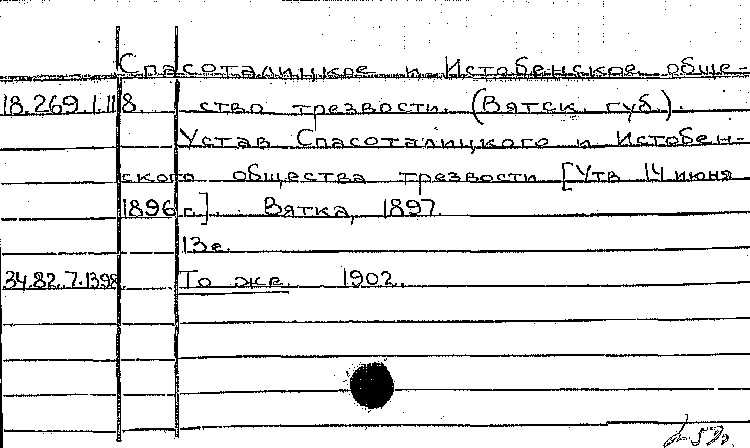 Спасоталицкое и Истобенское обще-
18.269.1.118. ство трезвости. (Вятск. губ.).
Устав Спасоталицкого и Истобен-
ского общества трезвости [Утв 14 июня
1896 г.]. Вятка, 1897.
13 с.
34.82.7.1398 То же. 1902.